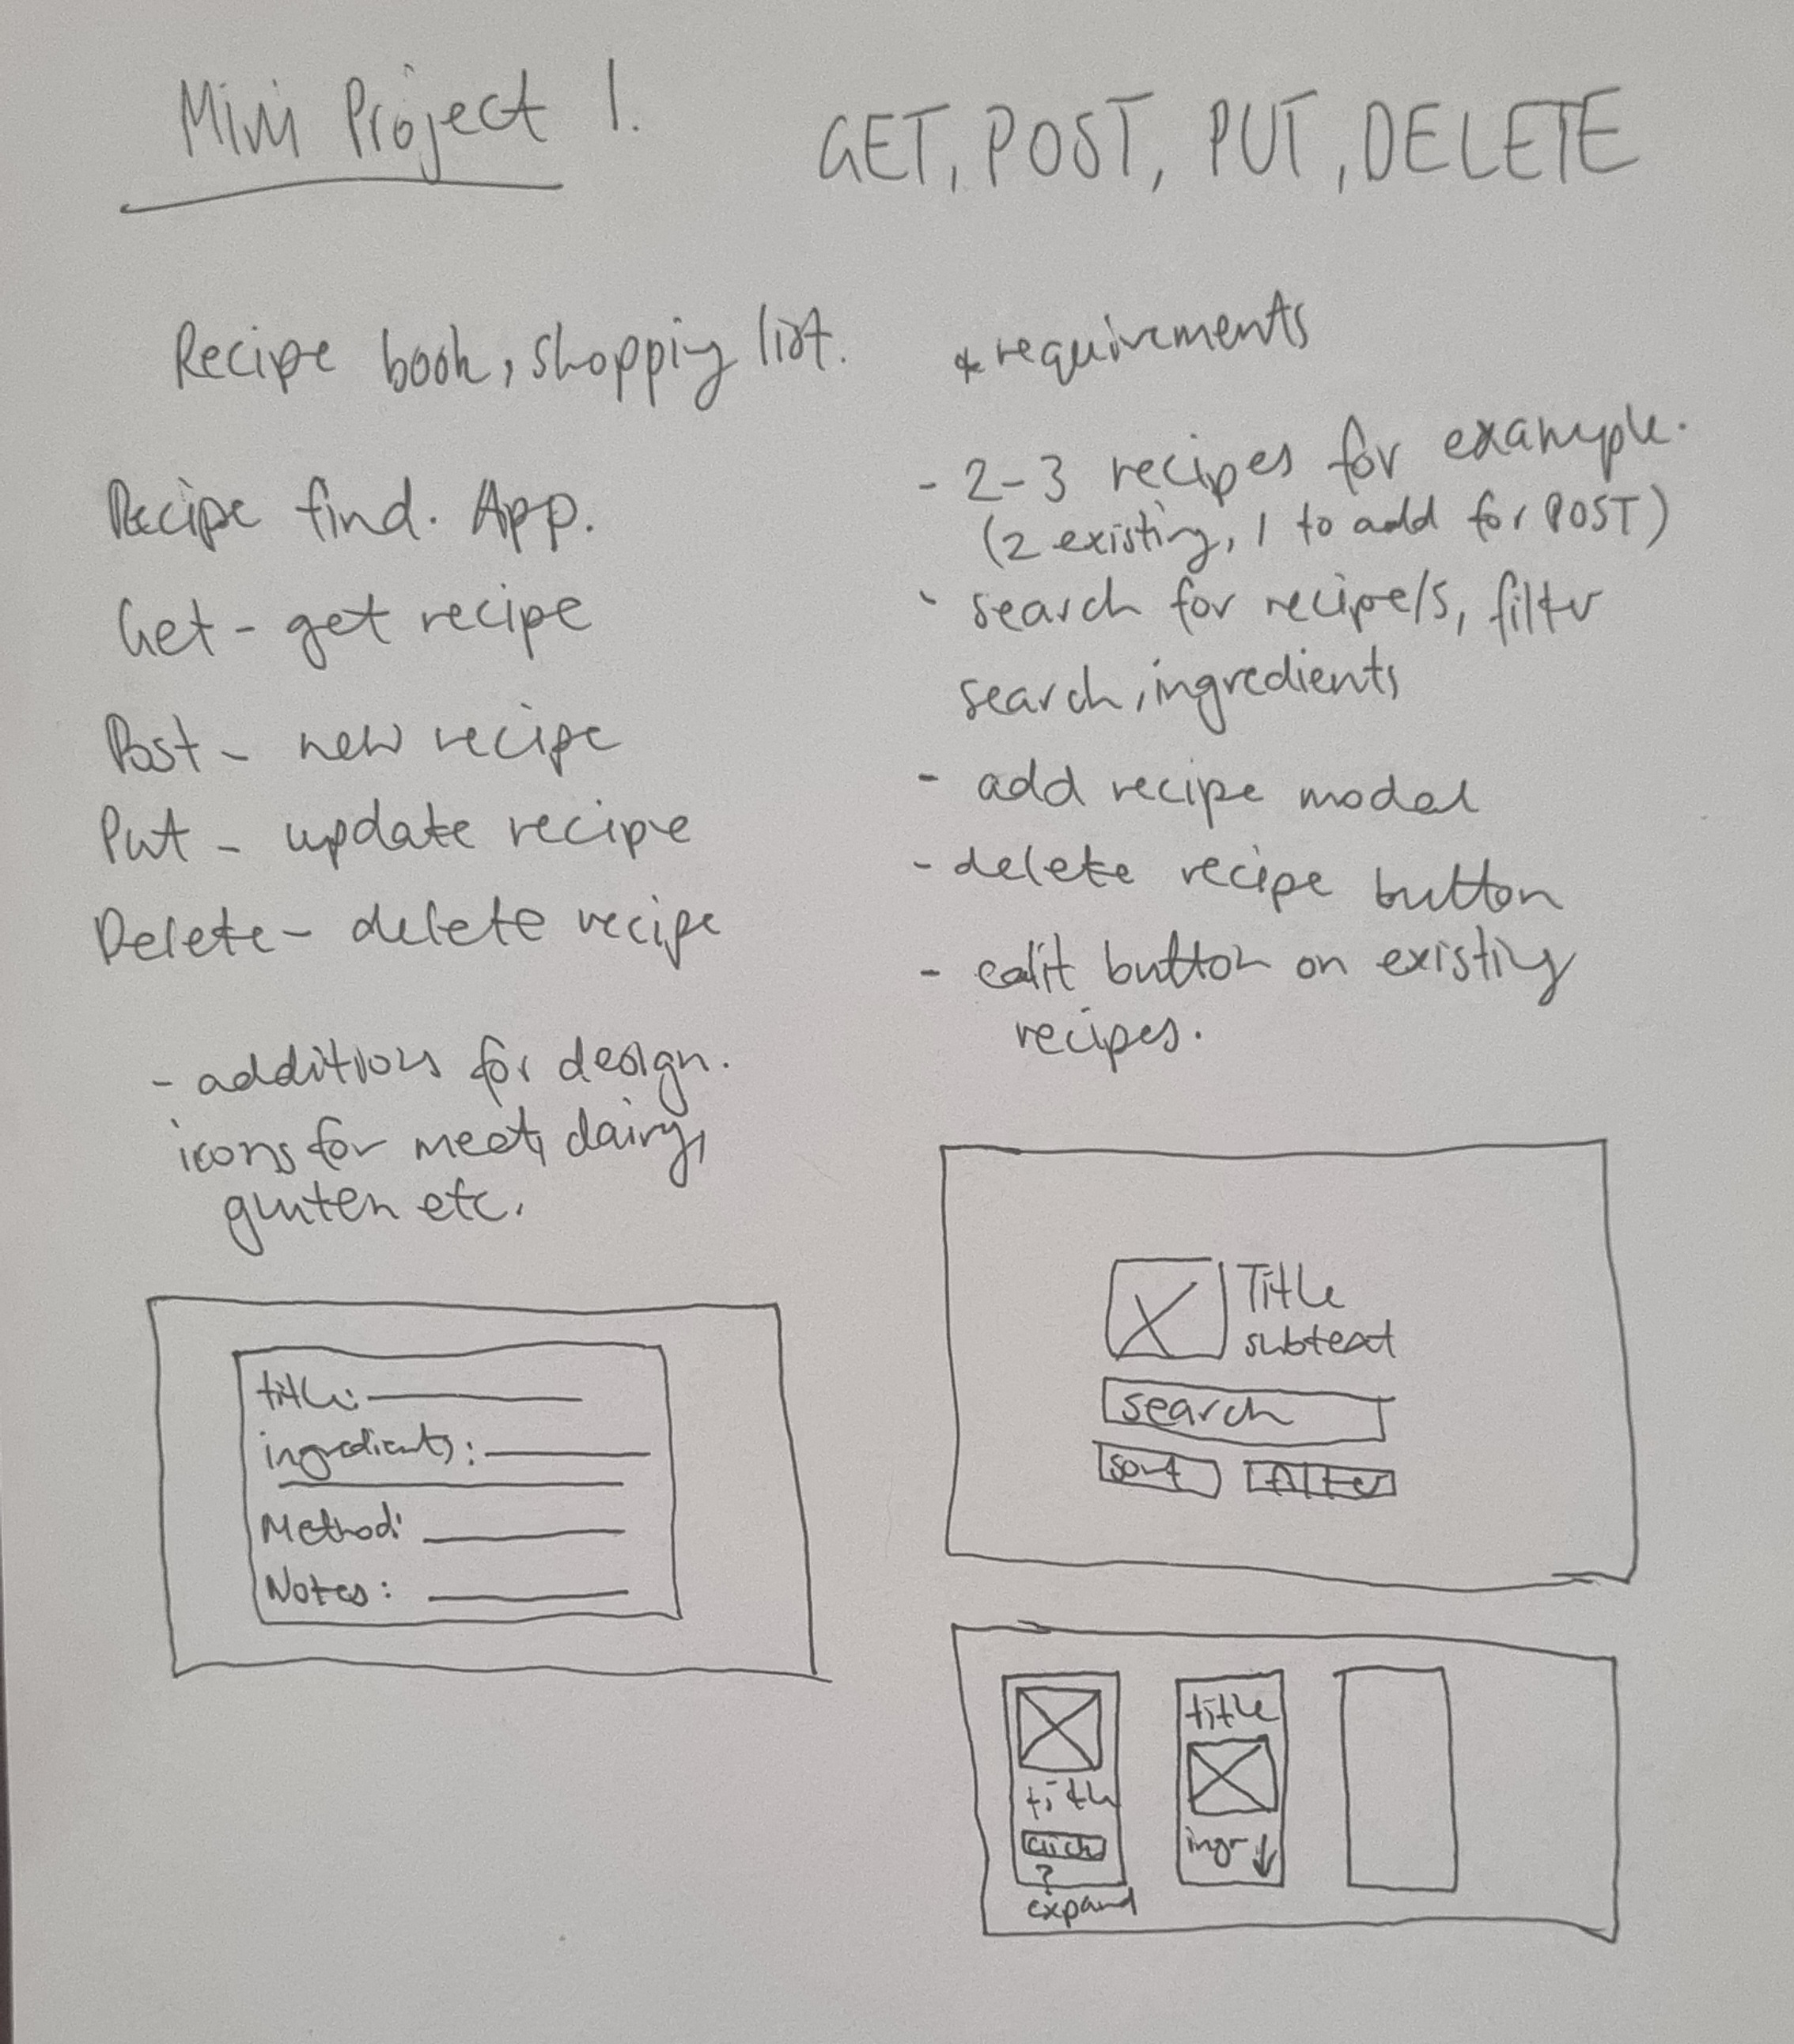 Mini Project 1.
GET, POST, PUT, DELETE
Recipe book, shopping list.
Recipe find. App.
Get - get recipe
Post - new recipe
Put - update recipe
Delete - delete recipe
- additions for design.
icons for meet, dairy,
gluten etc.
* requirements
- 2-3 recipes for example.
(2 existing, 1 to add for POST)
- search for recipe/s, filter
search, ingredients
- add recipe modal
- delete recipe button
- edit button on existing
recipes.
title:
ingredients:
Method:
Notes:
Title
subtext
search
sort filter
title
click
?
expand
title
ingr ↓